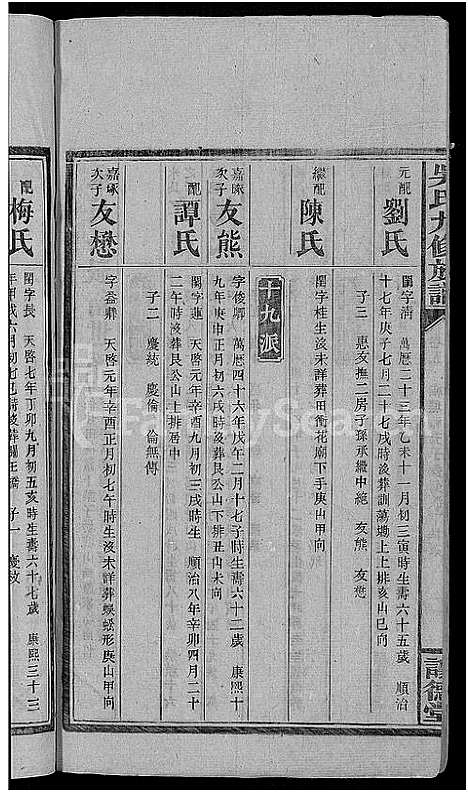 吳氏九修族譜
元配 劉氏
閨字清 萬曆二十三年乙未十一月初三寅時生壽六十五歲 順治
十七年庚子七月二十七戌時沒葬訓蕩塅上上排亥山巳向
子三 惠友撫二房子孫承繼中絶 友熊 友懋
繼配 陳氏
閨字桂生沒未詳葬田衝花廟下手庚山甲向
十九派
嘉啄次子 友熊
字俊卿 萬曆四十六年戊午二月十七子時生壽六十二歲 康熙十
九年庚申正月初六戌時沒葬艮公山上下排丑山未向
配 譚氏
閨字蓮 天啓元年辛酉九月初三戌時生 順治八年辛卯四月二十
二午時沒葬艮公山上排居中
子二 慶統 慶倫 倫無傳
嘉啄次子 友懋
字益辥 天啓元年辛酉正月初七午時生沒未詳葬蜈蚣形庚山甲向
配 梅氏
閨字長 天啓七年丁卯九月初五亥時生壽六十七歲 康熙三十三
年甲戌六月初七
子一 慶